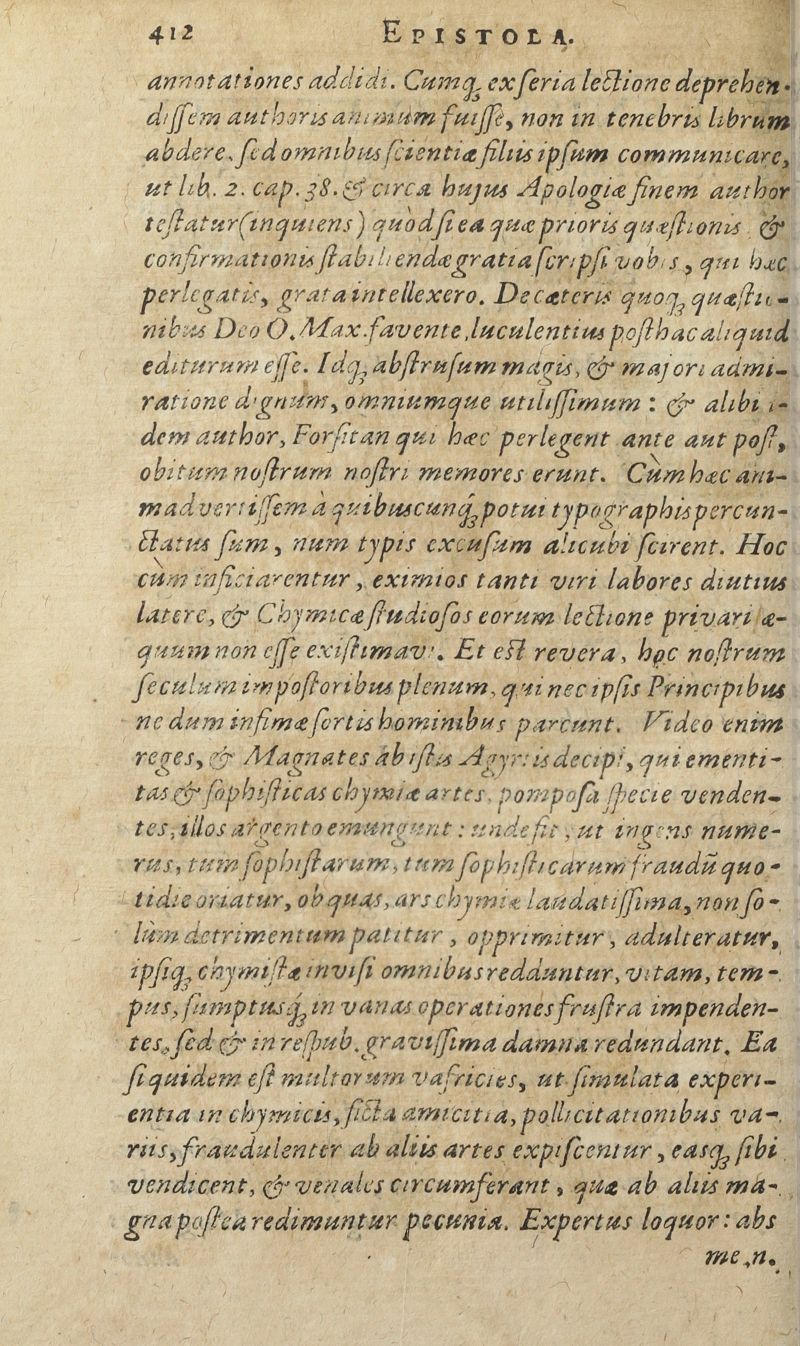 412 EPISTOLA.
annotationes addidi. Cumq́; ex ſeria lectione deprehen-
diſſem authoris animum fuiſſe, non in tenebris librum
abdere, ſed omnibus ſcientiæ filiis ipſum communicare,
ut lib. 2. cap. 38. & circa hujus Apologiæ finem author
teſtatur (inquiens) quòd ſi ea quæ prioris quæſtionis &
confirmationis ſtabiliendæ gratia ſcripſi vobis, qui hæc
perlegatis, grata intellexero. De cæteris quoq; quæſtio-
nibus Deo O. Max. favente, luculentius poſthac aliquid
editurum eſſe. Idq; abſtruſum magis, & majori admi-
ratione dignum, omniumque utiliſſimum : & alibi i-
dem author, Forſitan qui hæc perlegent ante aut poſt,
obitum noſtrum noſtri memores erunt. Cùm hæc ani-
madvertiſſem à quibuscunq́; potui typographis percun-
ctatus ſum, num typis excuſum alicubi ſcirent. Hoc
cùm inficiarentur, eximios tanti viri labores diutius
latere, & Chymicæ ſtudioſos eorum lectione privari æ-
quum non eſſe exiſtimavi. Et eſt revera, hoc noſtrum
ſeculum impoſtoribus plenum, qui nec ipſis Principibus
ne dum infimæ ſortis hominibus parcunt. Video enim
reges, & Magnates ab iſtis Agyrtis decipi, qui ementi-
tas & ſophiſticas chymiæ artes, pompoſa ſpecie venden-
tes, illos argento emungunt : unde fit, ut ingens nume-
rus, tum ſophiſtarum, tum ſophiſticarum fraudū quo-
tidie oriatur, ob quas, ars chymiæ laudatiſſima, non ſo-
lùm detrimentum patitur, opprimitur, adulteratur,
ipſiq; chymiſtæ inviſi omnibus redduntur, vitam, tem-
pus, ſumptusq́; in vanas operationes fruſtra impenden-
tes, ſed & in reſpub. graviſſima damna redundant. Ea
ſiquidem eſt multorum vafricies, ut ſimulata experi-
entia in chymicis, ficta amicitia, pollicitationibus va-
riis, fraudulenter ab aliis artes expiſcentur, easq; ſibi
vendicent, & venales circumferant, quæ ab aliis ma-
gna poſtea redimuntur pecunia. Expertus loquor : abs
me .n.